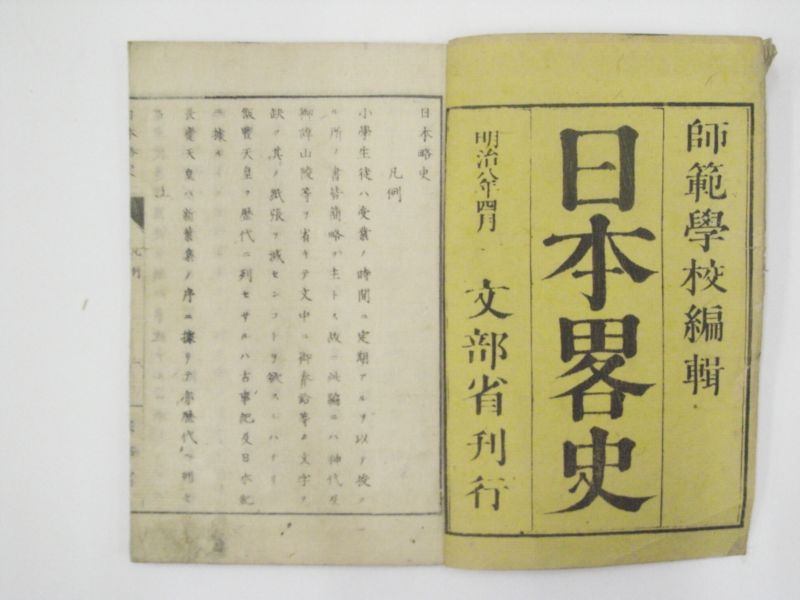 師範學校編輯
日本畧史
明治八年四月
文部省刊行
日本略史
凡例
小學生徒ハ受業ノ時間ニ定期アルヲ以テ授クル
所ノ書皆簡略ヲ主トス故ニ此編ニハ神代
御諱山陵等ヲ省キテ文中ニ御
等ノ文字ヲ
缺ク其ノ紙張ヲ減センコトヲ欲スレハナリ
飯豐天皇ヲ歴代ニ列セサルハ古事記及日本紀
ニ據ル
長慶天皇ハ新葉集ノ序ニ據リテ
歴代ニ列セ